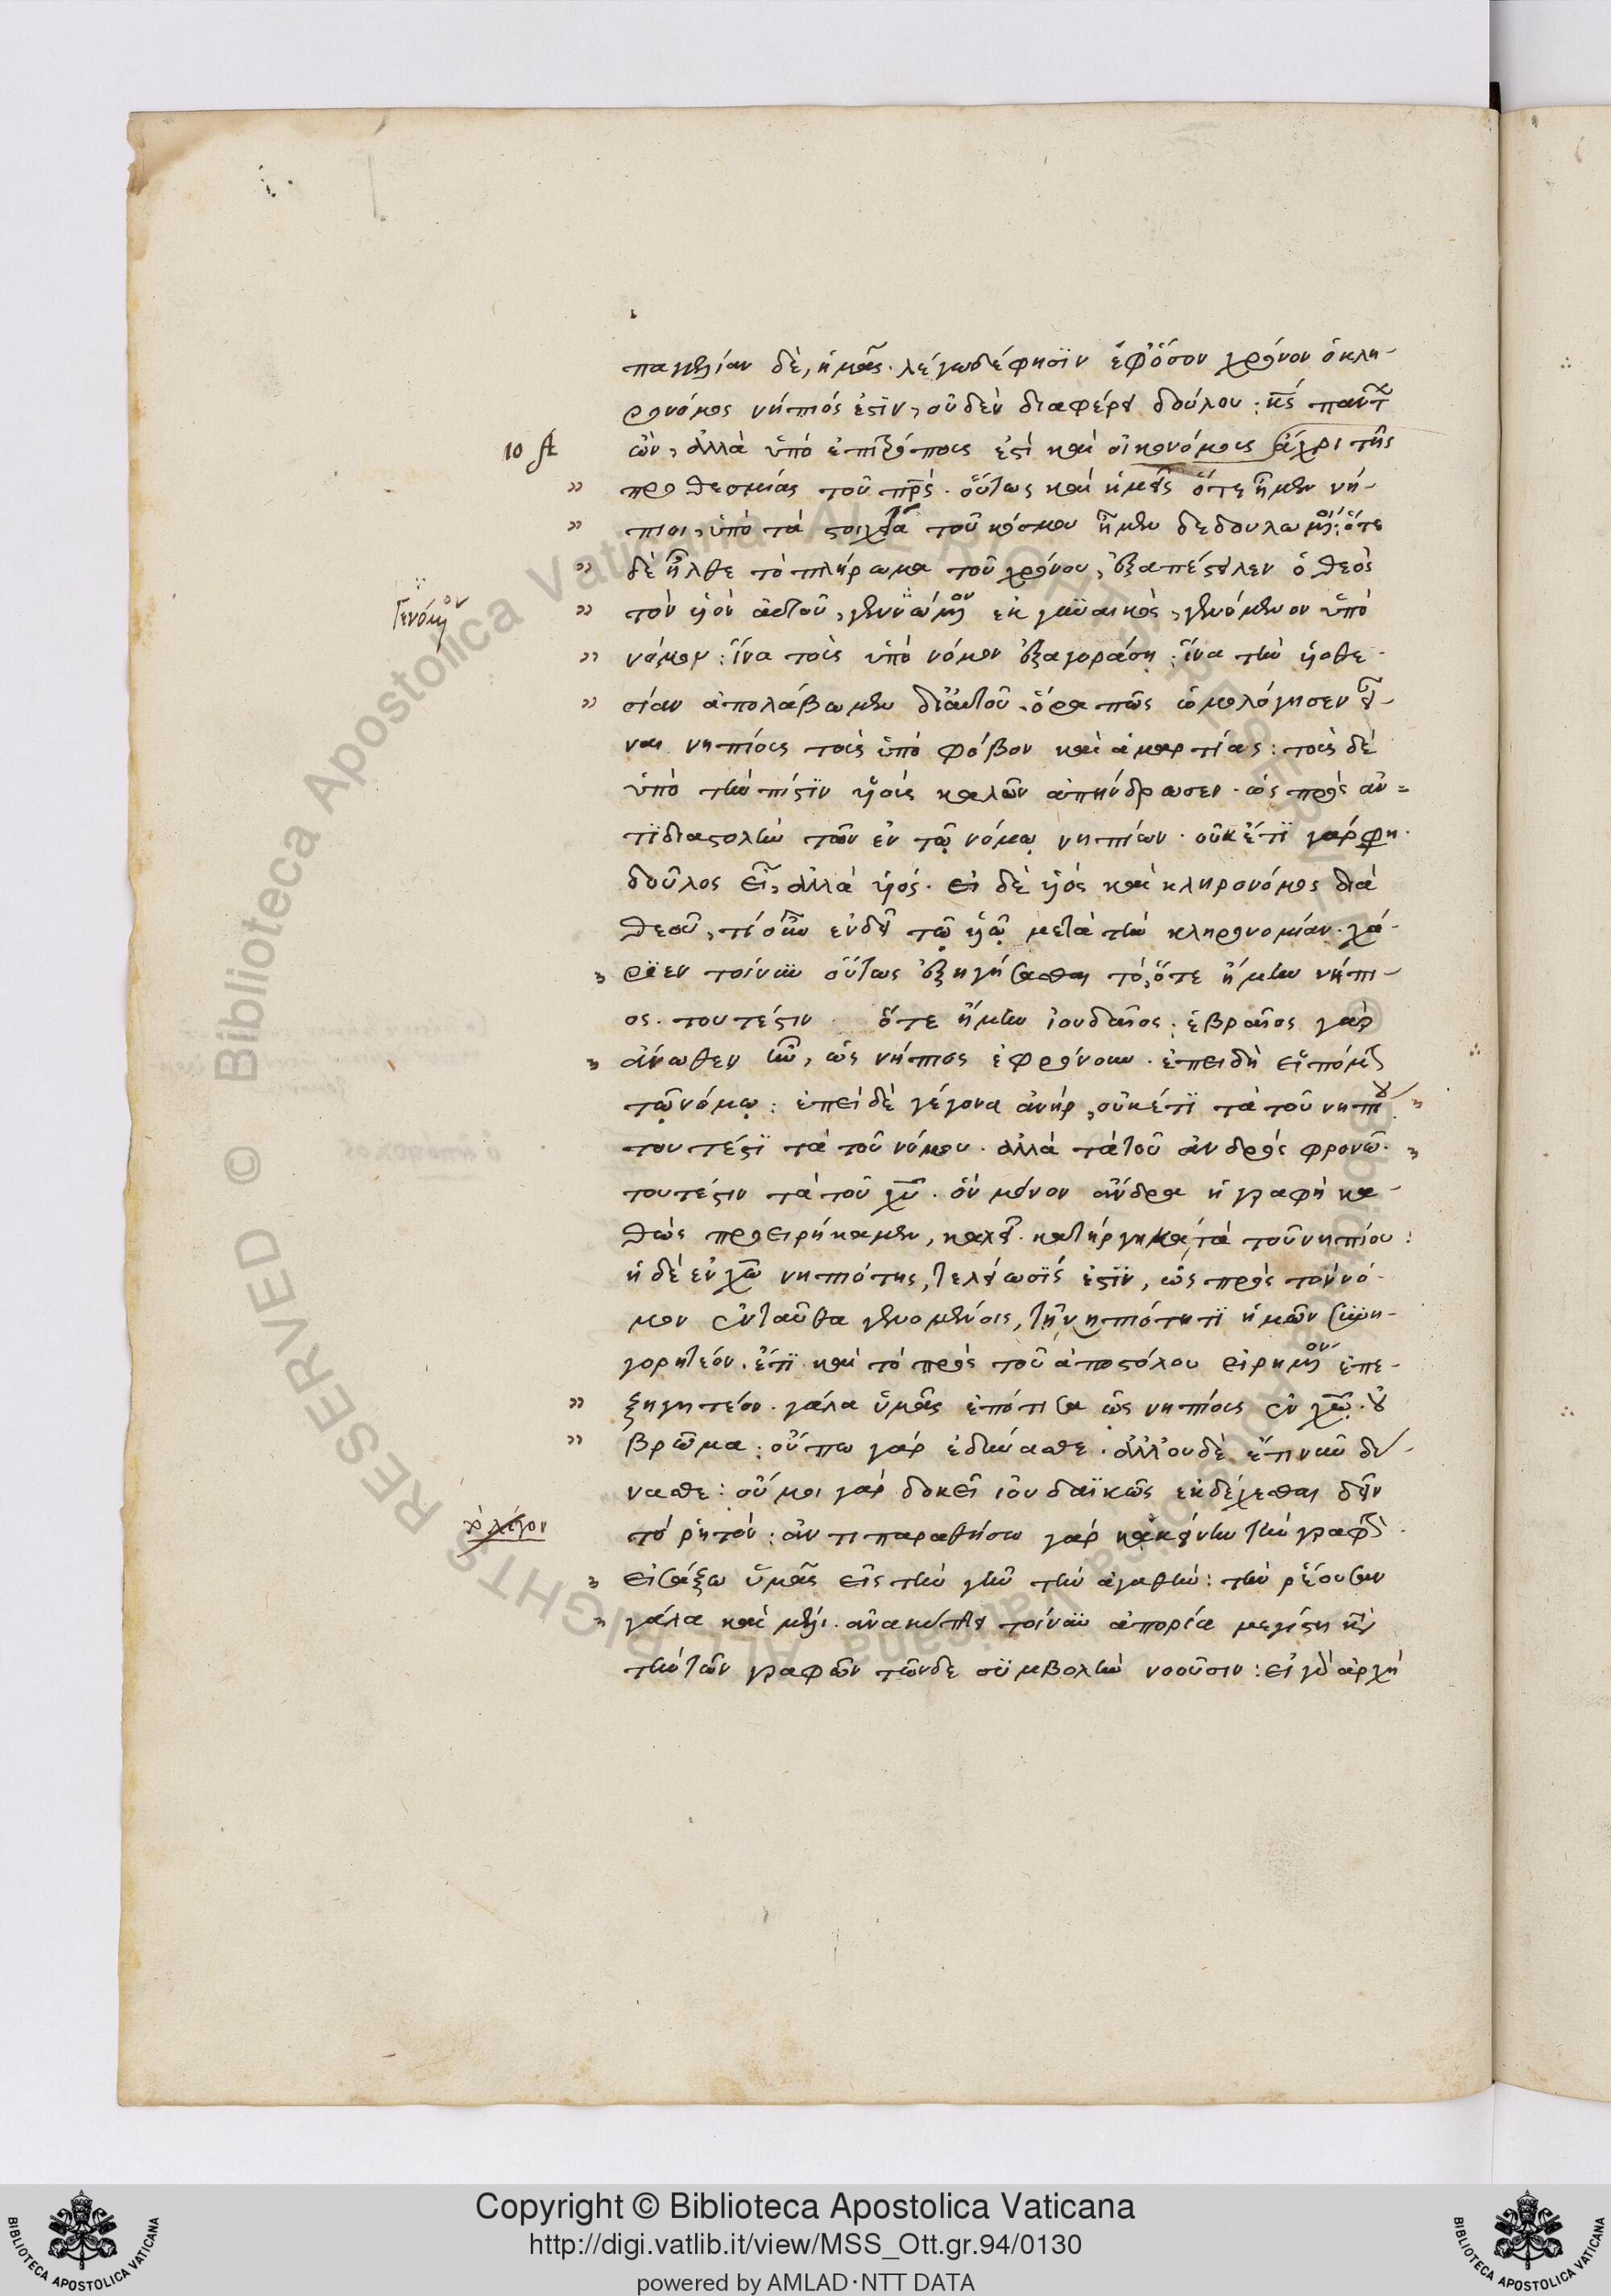 παγγελίαν δὲ, ἡμᾶς. λέγω δέ φησϊν ἐφ᾽ ὅσον χρόνον ὁ κλη-
ρονόμος νήπιός ἐστϊν, οὐδὲν διαφέρει δούλου: κς πάντ
10 ὢν, ἀλλὰ ὑπὸ ἐπιτρόπους ἐστὶ καὶ οἰκονόμους ἄχρι τῆς
προθεσμίας τοῦ πρς. οὕτως καὶ ἡμεῖς ὅτε ἦμεν νή-
πιοι, ὑπὸ τὰ στοιχεῖα τοῦ κόσμου ἦμεν δεδουλωμοι: ὅτε
δὲ ἦλθε τὸ πλήρωμα τοῦ χρόνου, ἐξαπέστειλεν ὁ θεὸς
Γενόμον
τὸν υἱὸν αὐτοῦ, γεννώμον ἐκ γυναικὸς, γενόμενον ὑπὸ
νόμον: ἵνα τοὺς ὑπὸ νόμον ἐξαγοράσῃ: ἵνα τὴν υἱοθε-
σίαν ἀπολάβωμεν δι᾽ αὐτοῦ. ὅρα πῶς ὡμολόγησεν εἶ-
ναι νηπίους τοὺς ὑπὸ φόβον καὶ ἁμαρτίας: τοὺς δὲ
ὑπὸ τὴν πίστϊν υἱοὺς καλῶν ἀπήνδρωσεν. ὡς πρὸς ἀν=
τϊδιαστολὴν τῶν ἐν τῷ νόμῳ νηπίων. οὐκέτϊ γάρ φη.
δοῦλος εἶ, ἀλλὰ υἱός. εἰ δὲ υἱός καὶ κληρονόμος διὰ
θεοῦ, τί οὖν ἐνδεῖ τῷ υἱῷ μετὰ τὴν κληρονομίαν. χά-
ρϊεν τοίνυν οὕτως ἐξηγήσασθαι τό, ὅτε ἤμην νήπι-
ος. τουτέστιν ὅτε ἤμην ἰουδαῖος: ἑβραῖος γὰρ
ἄνωθεν ἦν, ὡς νήπιος ἐφρόνουν. ἐπειδὴ εἱπόμην
τῷ νόμῳ: ἐπεὶ δὲ γέγονα ἀνήρ, οὐκέτϊ τὰ τοῦ νηπίου
τουτέστϊ τὰ τοῦ νόμου. ἀλλὰ τὰ τοῦ ἀνδρὸς φρονῶ.
τουτέστιν τὰ τοῦ χυ. ὃν μόνον ἄνδρα ἡ γραφὴ κα-
θὼς προειρήκαμεν, καλεῖ. κατήργηκα, τὰ τοῦ νηπίου:
ἡ δὲ ἐν χω νηπιότης, τελείωσϊς ἐστϊν, ὡς πρὸς τὸν νό-
μον ἐνταῦθα γενομένοις, τῇ νηπιότητϊ ἡμῶν συνη-
γορητέον. ἔτϊ καὶ τὸ πρὸς τοῦ ἀποστόλου εἰρημον ἐπε-
ξηγητέον. γάλα ὑμᾶς ἐπότισα ὡς νηπίους ἐν χω. οὐ
βρῶμα: οὔπω γὰρ ἐδύνασθε. ἀλλ᾽ οὐδὲ ἔτι νῦν δύ-
νασθε: οὔ μοι γὰρ δοκεῖ ἰουδαϊκῶς ἐκδέχεσθαι δεῖν
τὸ ρητόν: ἀντιπαραθήσω γὰρ κἀκείνην τὴν γραφὴν.
εἰσάξω ὑμᾶς εἰς τὴν γῆν τὴν ἀγαθὴν: τὴν ρέουσαν
γάλα καὶ μέλι. ἀνακύπτει τοίνυν ἀπορία μεγίστη κατὰ
τὴν τῶν γραφῶν τῶνδε συμβολὴν νοοῦσιν: εἰ γὰρ ἀρχὴ
Copyright © Biblioteca Apostolica Vaticana
http://digi.vatlib.it/view/MSS_Ott.gr.94/0130
powered by AMLAD·NTT DATA